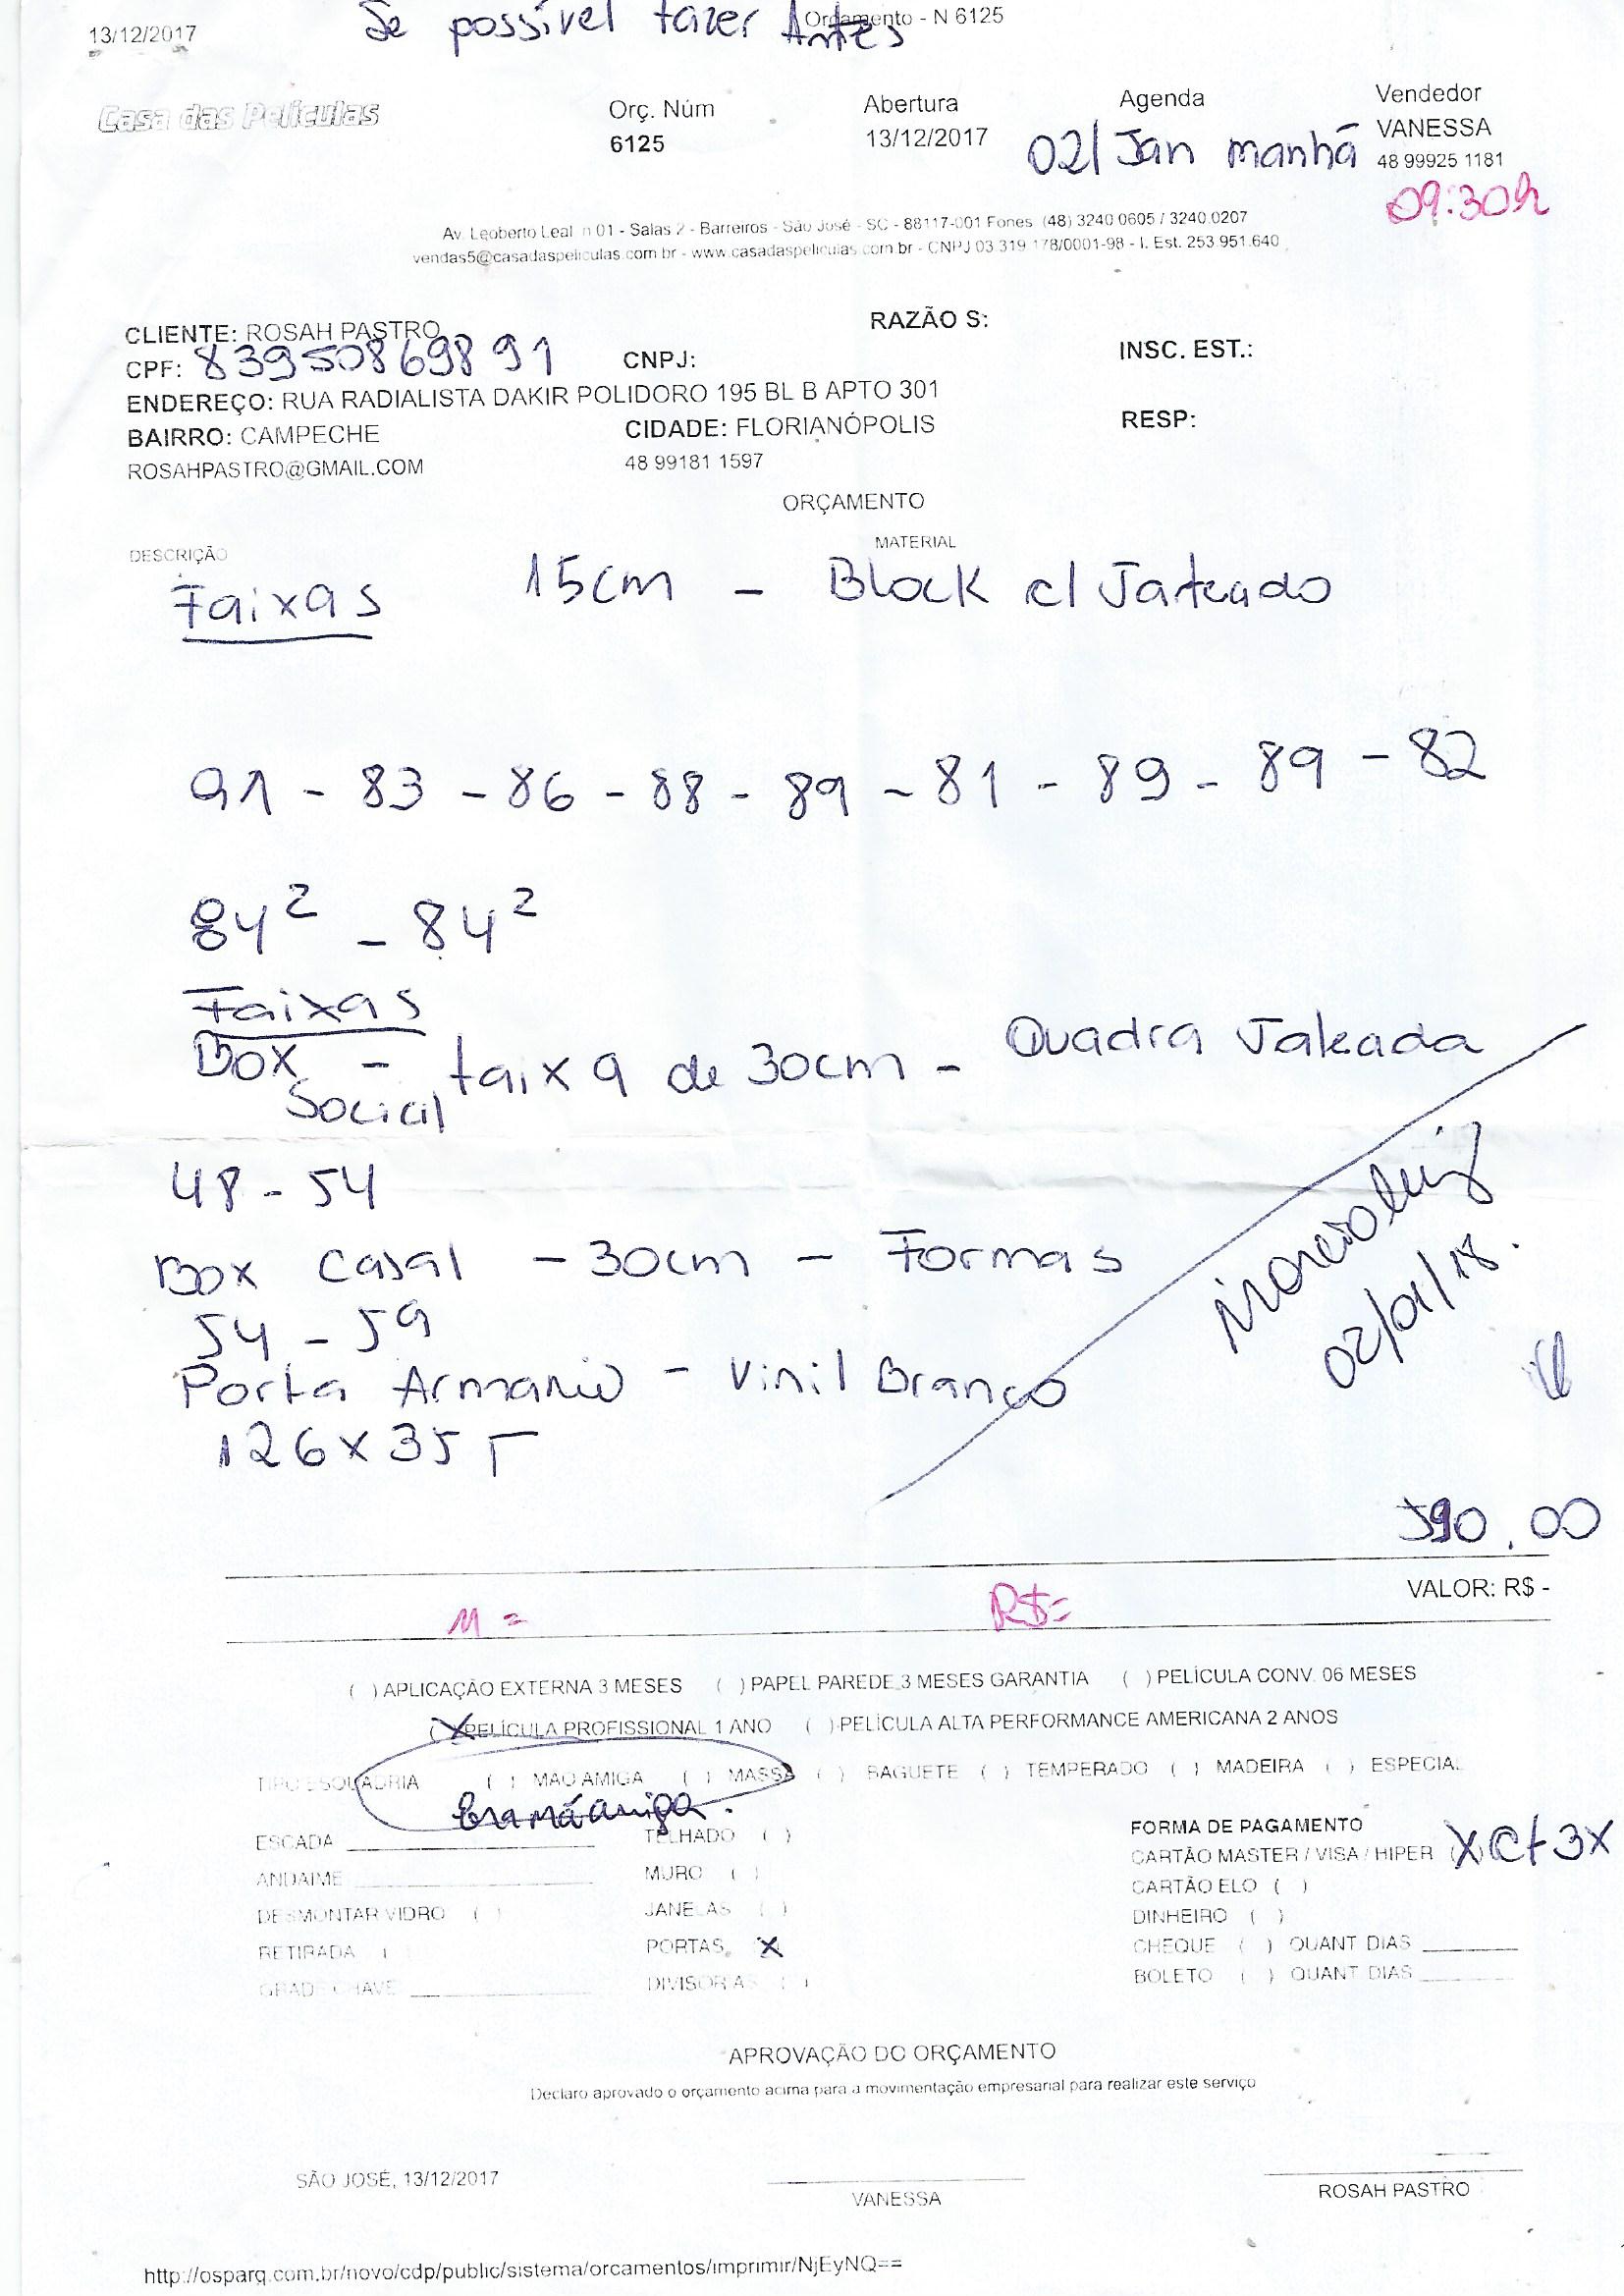 13/12/2017
Se possível fazer Antes
Orçamento - N 6125
Casa das Películas
Orç. Núm
6125
Abertura
13/12/2017
Agenda
02/Jan manhã
Vendedor
VANESSA
48 99925 1181
09:30h
Av. Leoberto Leal n 01 - Salas 2 - Barreiros - São José - SC - 88117-001 Fones (48) 3240.0605 / 3240.0207
vendas5@casadaspeliculas.com.br - www.casadaspeliculas.com.br - CNPJ 03.319.178/0001-98 - I. Est. 253.951.640
CLIENTE: ROSAH PASTRO
RAZÃO S:
CPF: 83950869891
CNPJ:
INSC. EST.:
ENDEREÇO: RUA RADIALISTA DAKIR POLIDORO 195 BL B APTO 301
BAIRRO: CAMPECHE
CIDADE: FLORIANÓPOLIS
RESP:
ROSAHPASTRO@GMAIL.COM
48 99181 1597
ORÇAMENTO
DESCRIÇÃO
MATERIAL
Faixas 15cm - Block c/ Jateado
91 - 83 - 86 - 88 - 89 - 81 - 89 - 89 - 82
84² - 84²
Faixas
Box Social - faixa de 30cm - Quadra Jateada
48 - 54
Box Casal - 30cm - Formas
54 - 59
Porta Armario - Vinil Branco
126x35
02/01/18.
590,00
VALOR: R$ -
M =
R$=
( ) APLICAÇÃO EXTERNA 3 MESES ( ) PAPEL PAREDE 3 MESES GARANTIA ( ) PELÍCULA CONV. 06 MESES
(X) PELÍCULA PROFISSIONAL 1 ANO ( ) PELÍCULA ALTA PERFORMANCE AMERICANA 2 ANOS
TIPO ESQUADRIA ( ) MAO AMIGA ( ) MASSA ( ) BAGUETE ( ) TEMPERADO ( ) MADEIRA ( ) ESPECIAL
ESCADA
TELHADO ( )
ANDAIME
MURO ( )
DESMONTAR VIDRO ( )
JANELAS ( )
RETIRADA (
PORTAS X
GRADE CHAVE
DIVISORIAS ( )
FORMA DE PAGAMENTO
CARTÃO MASTER / VISA / HIPER (X) Ct 3X
CARTÃO ELO ( )
DINHEIRO ( )
CHEQUE ( ) QUANT DIAS
BOLETO ( ) QUANT DIAS
APROVAÇÃO DO ORÇAMENTO
Declaro aprovado o orçamento acima para a movimentação empresarial para realizar este serviço
SÃO JOSÉ, 13/12/2017
VANESSA
ROSAH PASTRO
http://osparq.com.br/novo/cdp/public/sistema/orcamentos/imprimir/NjEyNQ==